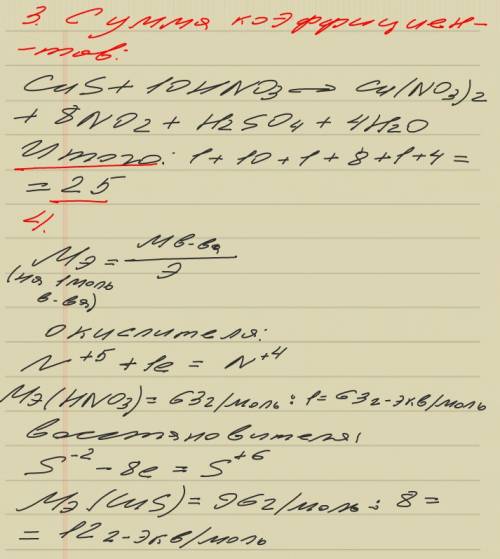 3. Сумма коэффициен-
-тов:
CuS + 10HNO3 → Cu(NO3)2
+ 8NO2 + H2SO4 + 4H2O
Итого: 1+10+1+8+1+4=
= 25
4.
Mэ = Mв-ва / Э
(на 1 моль
в-ва)
окислителя:
N+5 + 1e = N+4
Mэ(HNO3) = 63 г/моль : 1 = 63 г-экв/моль
восстановителя:
S-2 - 8e = S+6
Mэ(CuS) = 96 г/моль : 8 =
= 12 г-экв/моль